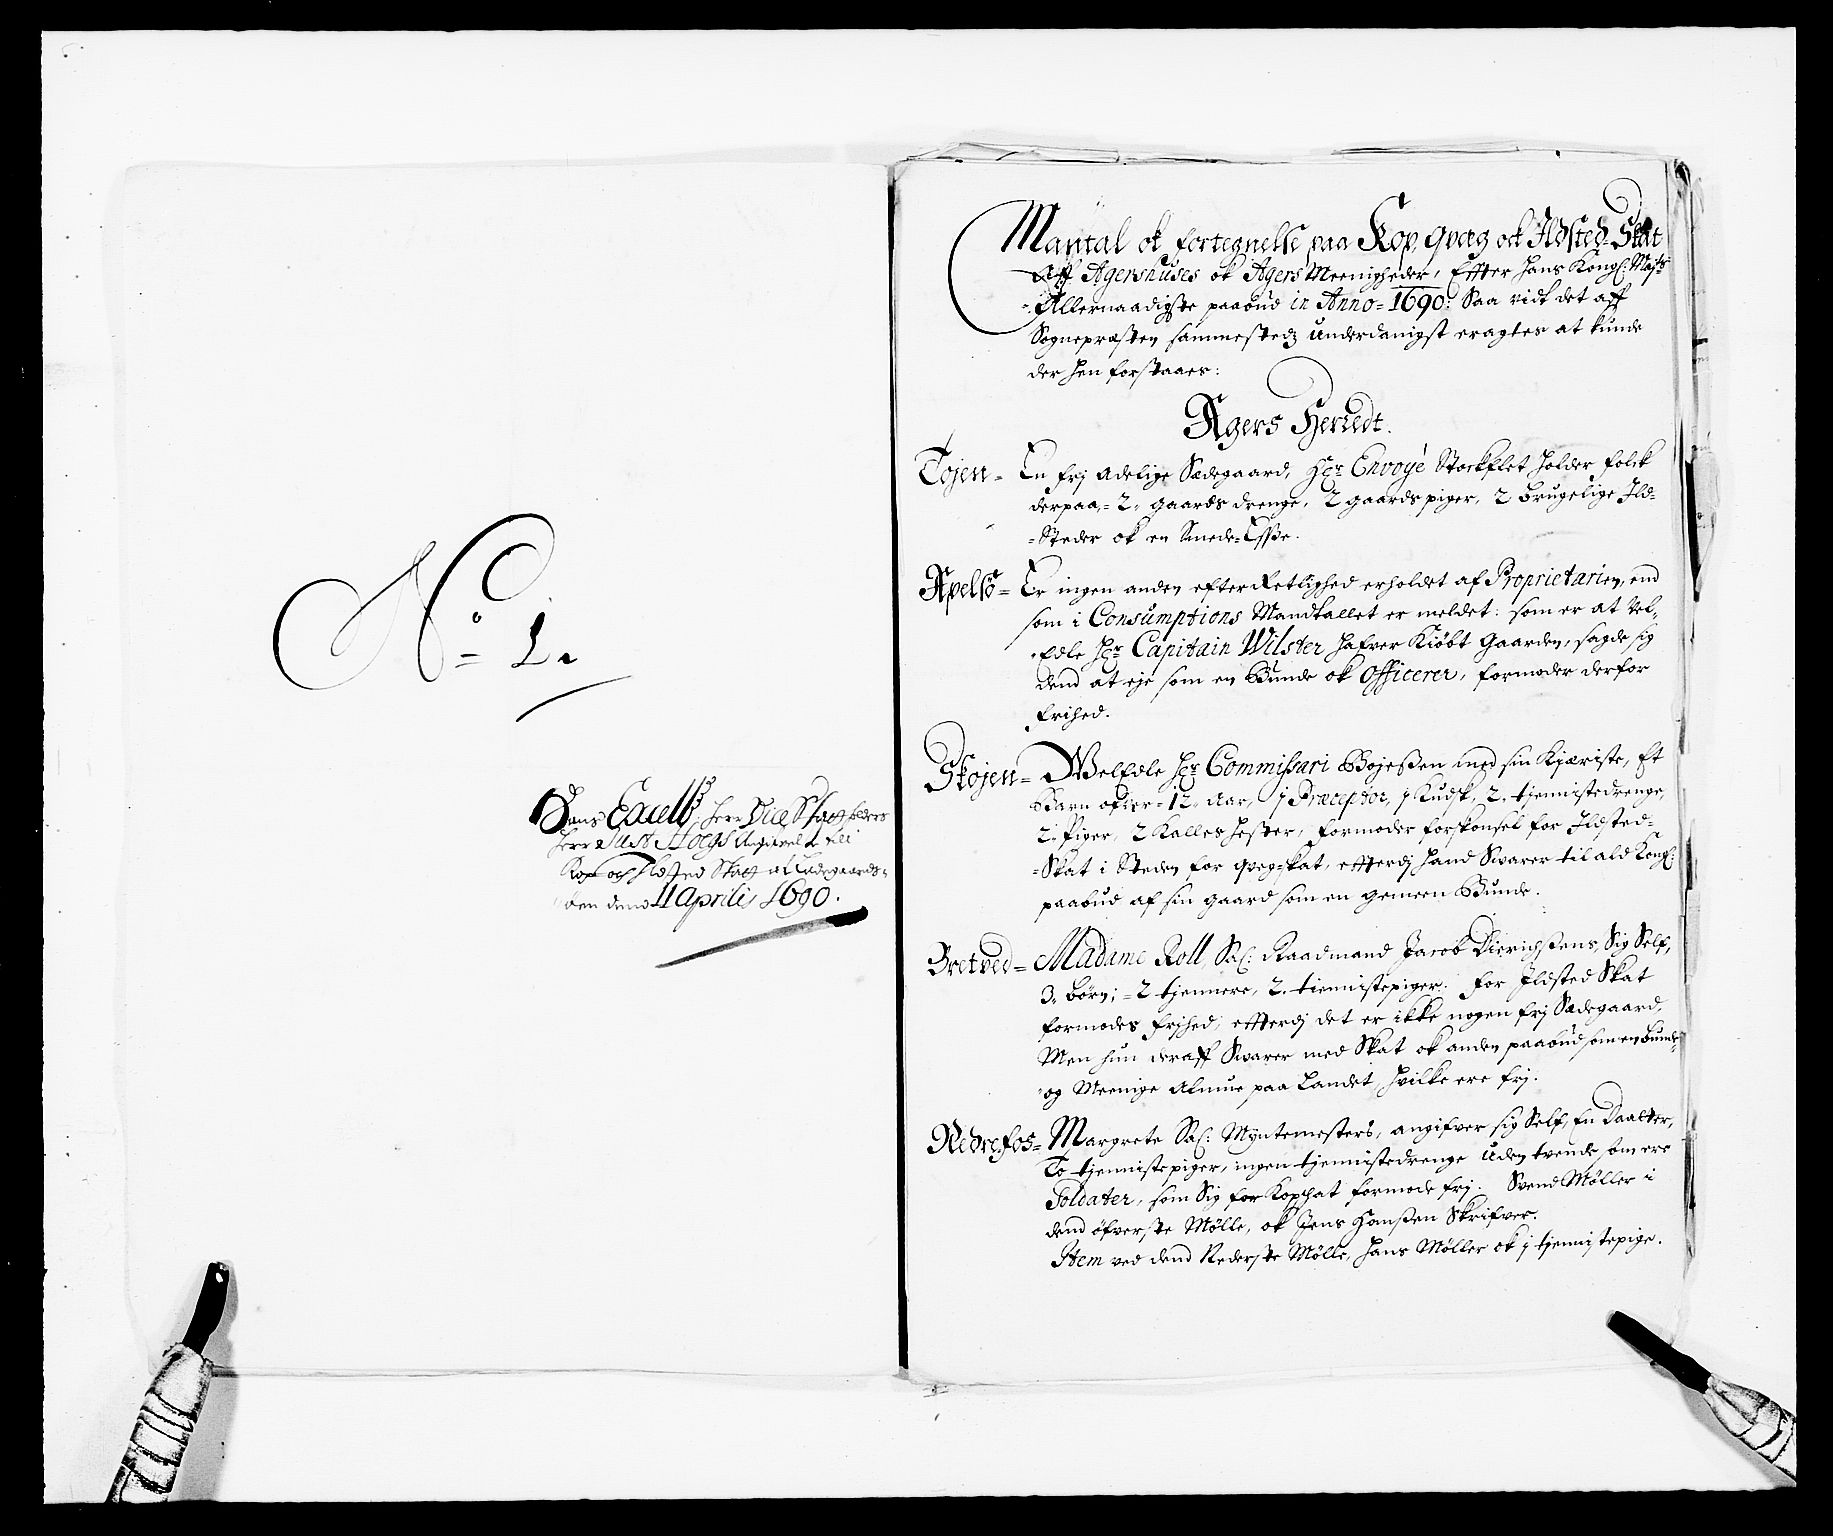 No 1.
Hans Excell: Herr Vice Statholders
Herr Just Høegs Angifvelse till
Kop och Ildsted Skat af Ladegaards-
øen dend 11 Aprilis 1690.
Mantal ok fortegnelse paa Kop, qvæg ock Ildsted-Skat
aff Agershuses ok Agers Meenigheder, Effter Hans Kongl: Majts
Allernaadigste paabud in Anno=1690: Saa vidt det aff
Sognepræsten sammestedz underdanigst eragtes at kunde
der hen forstaaes:
Agers Herredt.
Tojen= En frj Adelige Sædegaard, Hr Envoyé Stockflet holder folck
derpaa,= 2, gaards drenge, 2 gaards piger, 2 brugelige Ild-
=Steder ok en Smede=Esse.
Apelsö= Er ingen anden efterRetlighed erholdet af Proprietarien, end
som i Consumptions Mandtallet er meldet: som er at Vel-
Edle Hr Capitain Wilster hafver Kiöbt Gaarden, sagde sig
dend at eje som en Bunde ok Officerer, formoder derfor
frihed.
Skojen= WelEdle Hr Commissari Bojessen med sin Kjæriste, Et
Barn ofver=12. Aar, 1 Præceptor, 1 Kudsk, 2. tjennistedrenge,
2. Piger, 2 Kalles Hester, formoder forskonsel for Ildsted=
=Skat i Steden for qveg=skat, efterdj hand Swarer til ald Kongl:
paabud af sin gaard som en gemeen Bunde.
Bretved= Madame Roll, Sal: Raadmand Jacob Dierichssens, Sig Self,
3. börn;=2 tjennere, 2. tiennistepiger. for Ildsted Skat
formodes frjhed, effterdj det er ikke nogen frj Sædegaard,
Men hun deraff Swarer med Skat ok anden paabud som en bunde
og Meenige Almue paa Landet, hvilke ere frj.
Nedrefos= Margrete Sal: Myntemesters, angifver sig Self, En Daatter,
To tjennistepiger, ingen tjennistedrenge uden tvende som ere
Soldater, som Sig for Kopskat formode frj. Svend Møller i
dend öfverste Mølle, ok Jens Hanssen Skrifver.
Item ved dend Nederste Mölle, Hans Møller ok 1 tjennistepige.